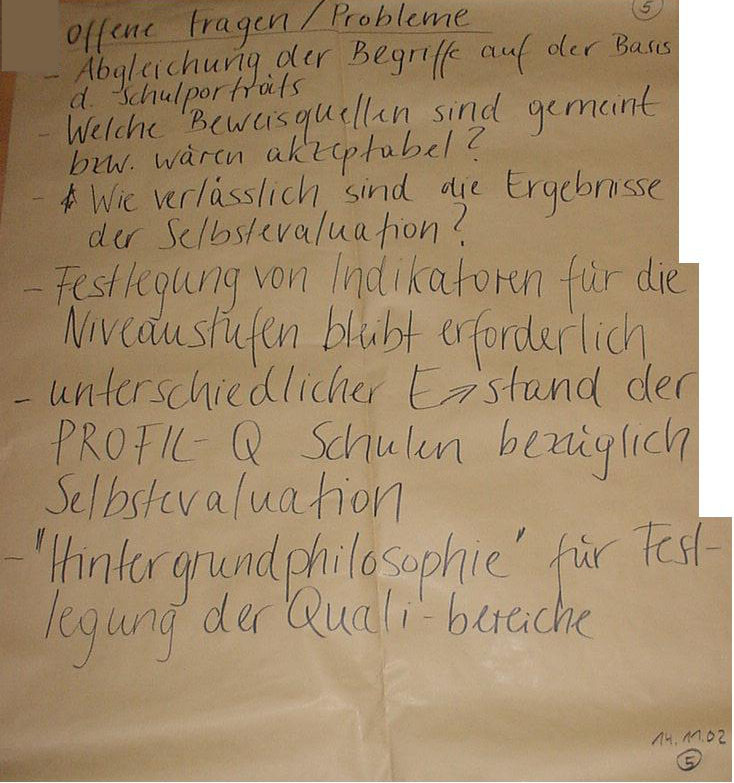 offene Fragen/Probleme
5
- Abgleichung der Begriffe auf der Basis
d. Schulporträts
- Welche Beweisquellen sind gemeint
bzw. wären akzeptabel?
- Wie verlässlich sind die Ergebnisse
der Selbstevaluation?
- Festlegung von Indikatoren für die
Niveaustufen bleibt erforderlich
- unterschiedlicher E↗stand der
PROFIL-Q Schulen bezüglich
Selbstevaluation
- "Hintergrundphilosophie" für Fest-
legung der Quali-bereiche
14.11.02
5